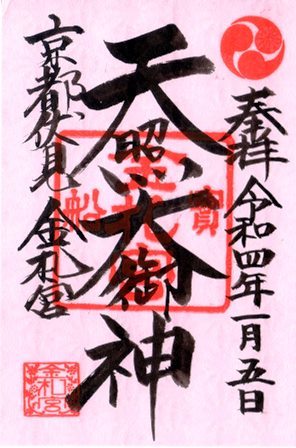 奉拝 令和四年一月五日
天照大御神
京都伏見 金札宮
寳
金札宮
船
金札宮